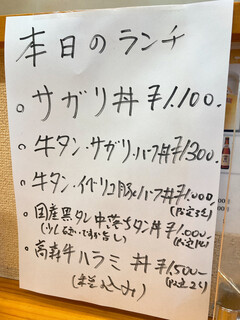 本日のランチ
○ サガリ丼 ¥1,100-
○ 牛タン・サガリ・ハーフ丼 ¥1300-
○ 牛タン・イベリコ豚ハーフ丼 ¥1,000
(限定3食)
○ 国産黒タレ中落ちタン丼 ¥1,000-
(少し硬いですが旨し)
○ 高森牛ハラミ丼 ¥1,500-
(限定2食)
(税込み)